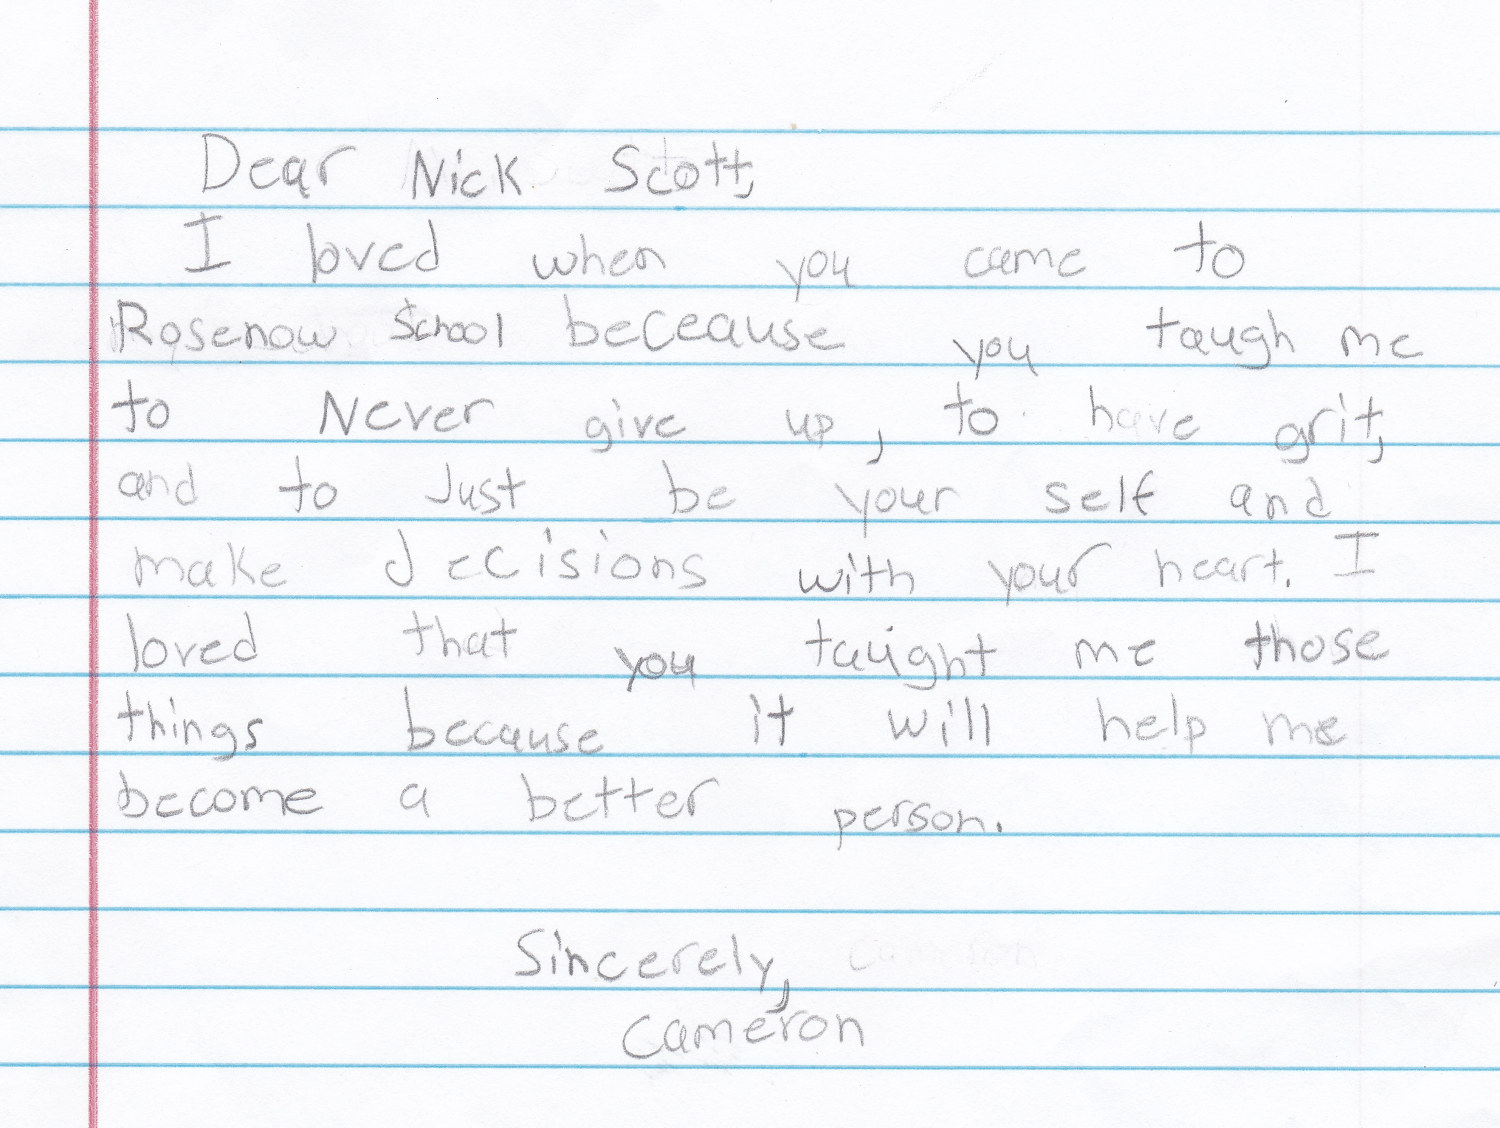 Dear Nick Scott,
I loved when you came to
Rosenow School beceause you taugh me
to Never give up, to have grit,
and to Just be your self and
make decisions with your heart. I
loved that you taught me those
things because it will help me
become a better person.
Sincerely,
Cameron